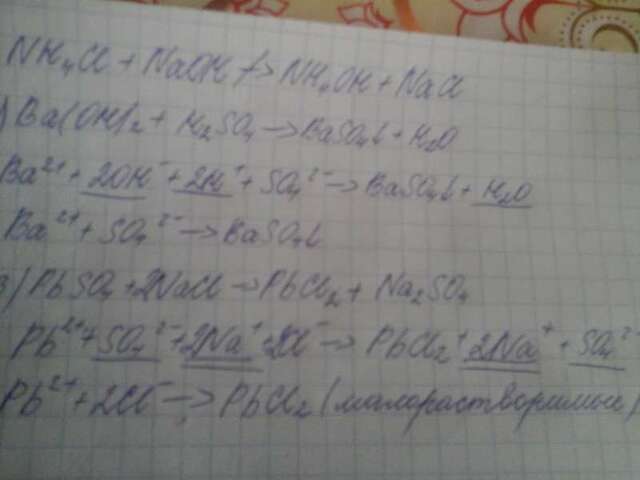 NH₄Cl + NaOH ↛ NH₄OH + NaCl
) Ba(OH)₂ + H₂SO₄ → BaSO₄↓ + H₂O
Ba²⁺ + 2OH⁻ + 2H⁺ + SO₄²⁻ → BaSO₄↓ + H₂O
Ba²⁺ + SO₄²⁻ → BaSO₄↓
) PbSO₄ + 2NaCl → PbCl₂ + Na₂SO₄
Pb²⁺ + SO₄²⁻ + 2Na⁺ + 2Cl⁻ → PbCl₂ + 2Na⁺ + SO₄²⁻
Pb²⁺ + 2Cl⁻ → PbCl₂ (малорастворимые)